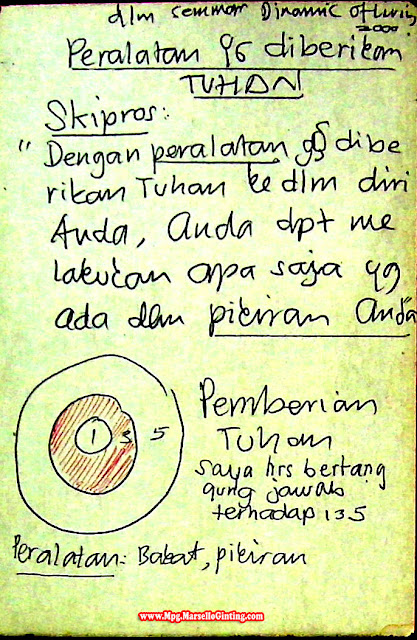 dlm seminar Dinamic of Living
2000
Peralatan yg diberikan
TUHAN
Skipros:
"Dengan peralatan yg dibe
rikan Tuhan ke dlm diri
Anda, Anda dpt me
lakukan apa saja yg
ada dlm pikiran Anda
1 3 5
Pemberian
Tuhan
saya hrs bertang
gung jawab
terhadap 135
Peralatan: Bakat, pikiran
www.Mpg.MarselloGinting.com